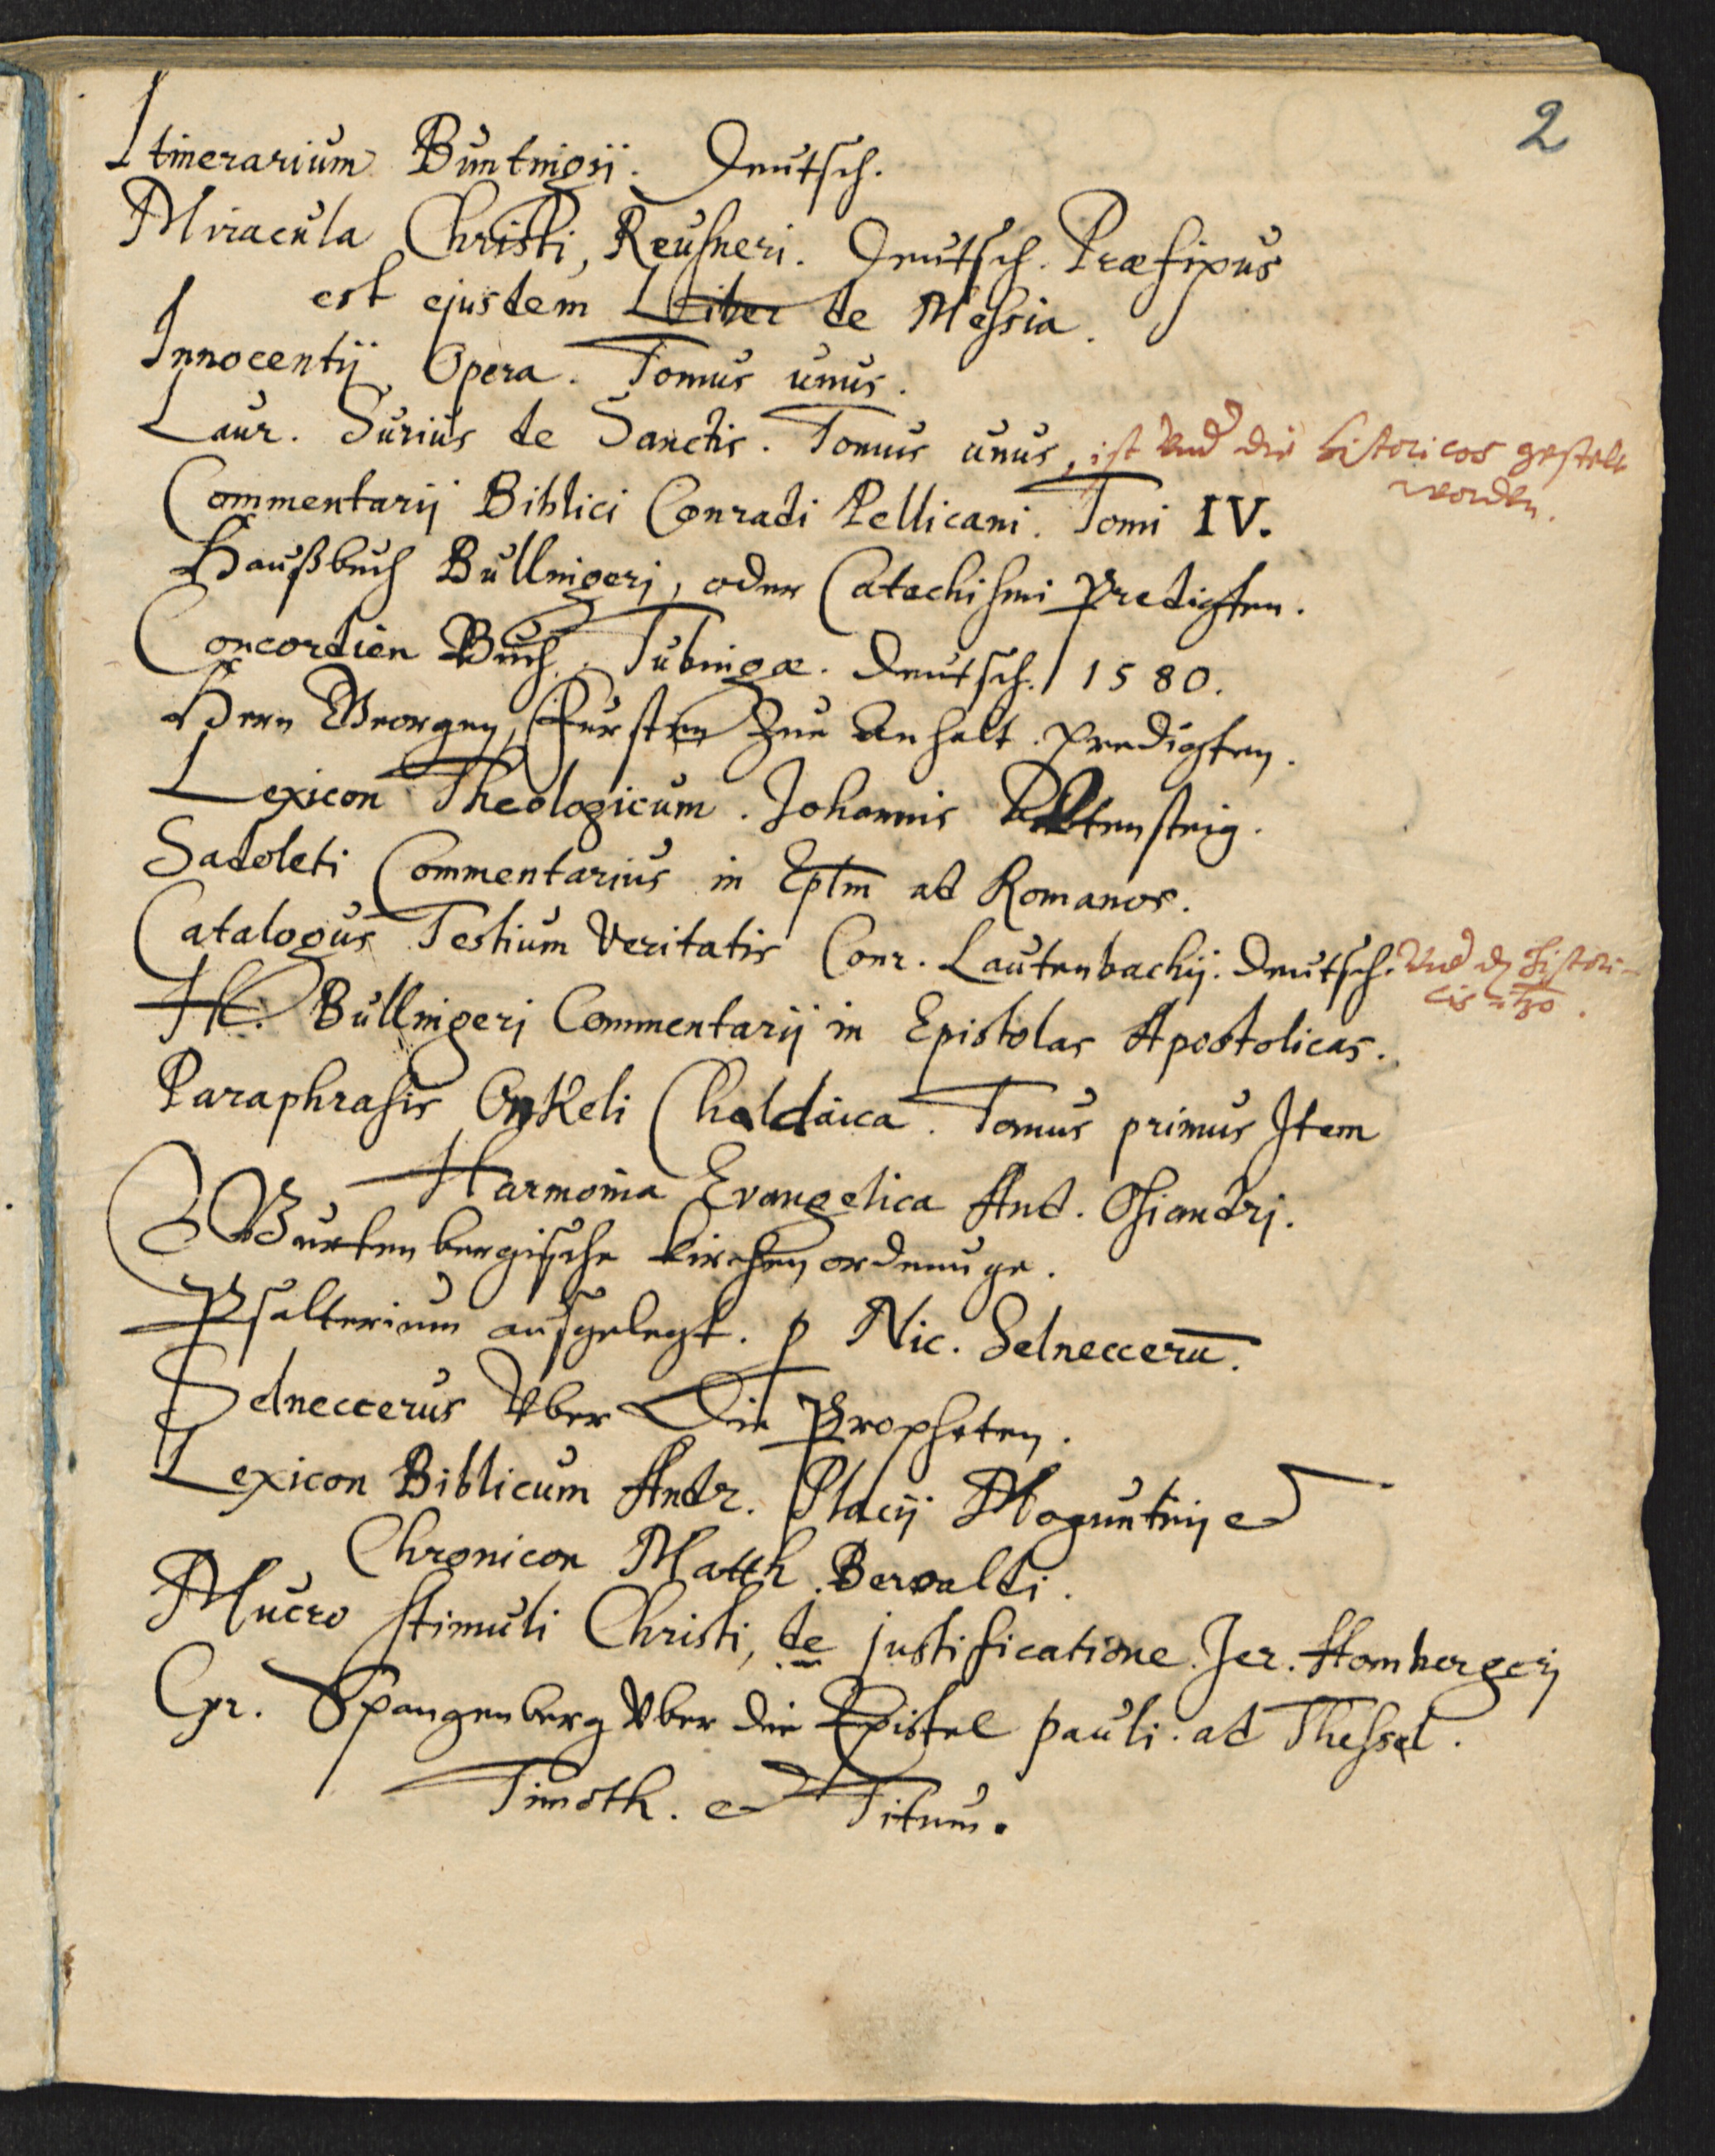 2
Itinerarium Buntingij. Deutsch.
Miracula Christi, Reusneri. Deutsch. Præfixus
est ejusdem Liber de Messia.
Innocentij Opera. Tomus unus.
Laur. Surius de Sanctis. Tomus unus, ist vnd die historicos gestelt
worden.
Commentarij Biblici Conradi Pellicani. Tomi IV.
Haußbuch Bullingeri, oder Catechismi Predigten.
Concordien Buch, Tubingæ. Deutsch. 1580.
Hern Georgen, Fürsten zue Anhalt. Predigten.
Lexicon Theologicum. Johannis Altensteig.
Sadoleti Commentarius in Eplm ad Romanos.
Catalogus Testium Veritatis Conr. Lautenbachij. Deutsch. Histori-
cis
H. Bullingeri Commentarij in Epistolas Apostolicas.
Paraphrasis Onkeli Chaldaica. Tomus primus Item
Harmonia Evangelica And. Osiandri.
Wurtenbergische kirchenordnunge.
Psalterium ausgelegt. p Nic. Selneccerū.
Selneccerus Vber Die Propheten.
Lexicon Biblicum Andr. Placij Moguntinj et
Chronicon Matth. Beroaldi.
Mucro stimuli Christi, de justificatione. Jer. Hombergerj
Cyr. Spangenberg Vber die Epistel pauli. ad Thessal.
Timoth. et Titum.